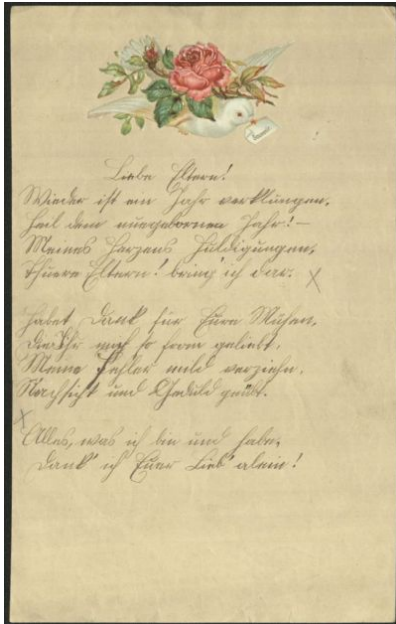 Liebe Eltern!
Wieder ist ein Jahr verklungen,
Heil dem neugebornen Jahr! —
Meines Herzens Huldigungen,
Theuere Eltern! bring' ich dar. X
Habet Dank für Eure Mühen,
Die Ihr mich so from geliebt,
Meine Fehler mild verziehn,
Nachsicht und Geduld geübt.
X
Alles, was ich bin und habe,
Dank' ich Eurer Lieb' alein!